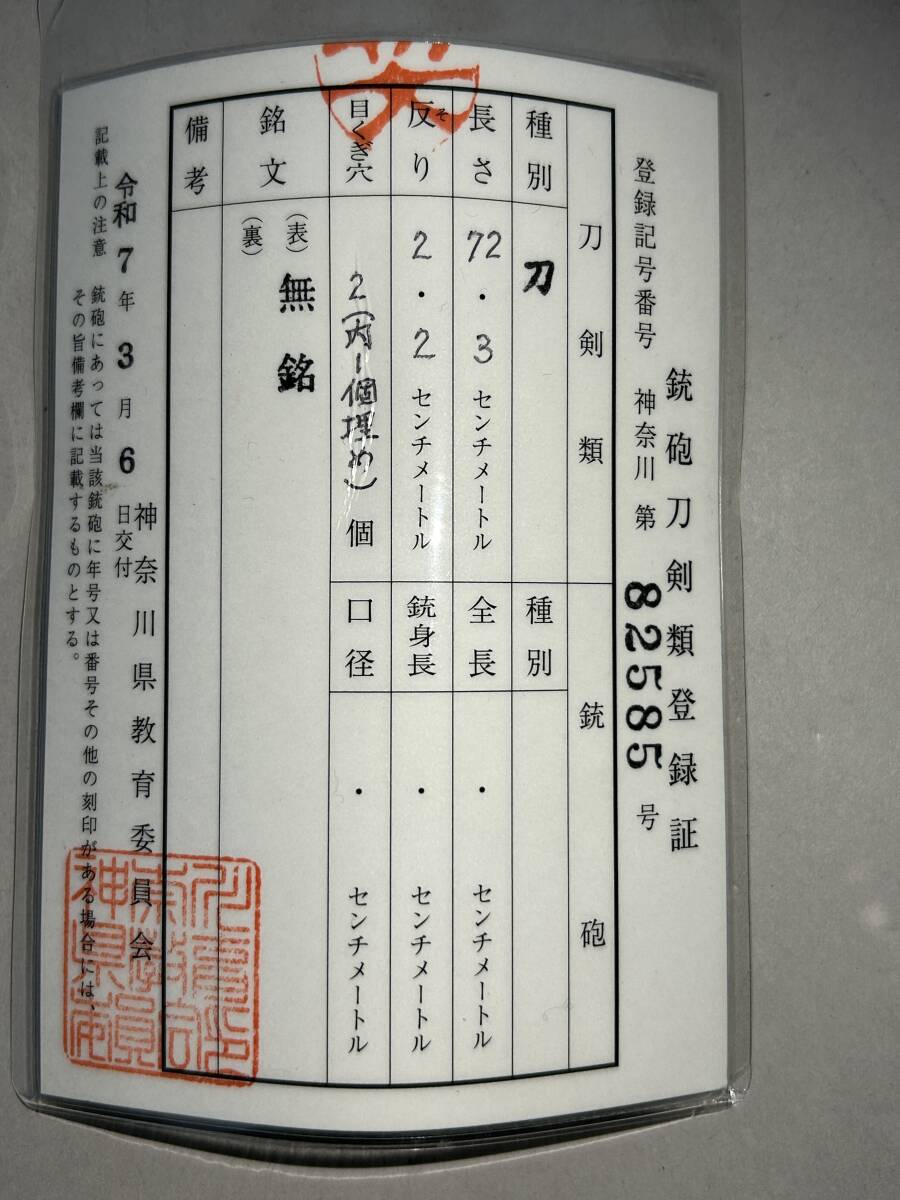 銃砲刀剣類登録証
登録記号番号 神奈川 第 82585 号
刀剣類
銃砲
種別 刀
種別
長さ 72.3 センチメートル
全長 ・ センチメートル
反り 2.2 センチメートル
そ
銃身長 ・ センチメートル
目くぎ穴 2(内1個埋め) 個
口径 ・ センチメートル
銘文 (表) 無銘
(裏)
備考
神奈川県教育委員会
令和 7 年 3 月 6 日交付
記載上の注意 銃砲にあっては当該銃砲に年号又は番号その他の刻印がある場合には、
その旨備考欄に記載するものとする。